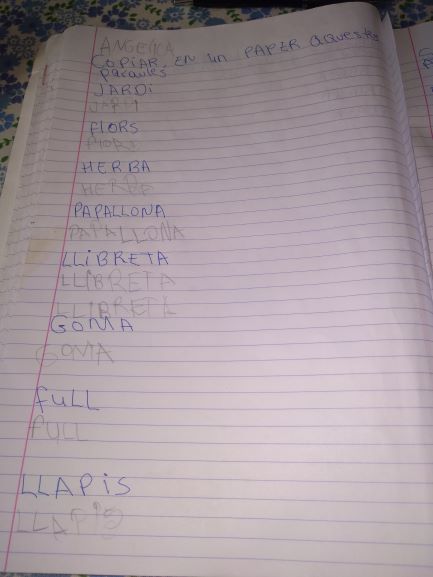 ANGELICA
COPIAR EN UN PAPER AQUESTES
PARAULES
JARDi
JARDI
flORS
flORS
HERBA
HERBE
PAPALLONA
PATALLONA
LLiBRETA
LLIBRETA
LLIBRETA
GOMA
GOMA
fuLL
fULL
LLAPiS
LLAPiS